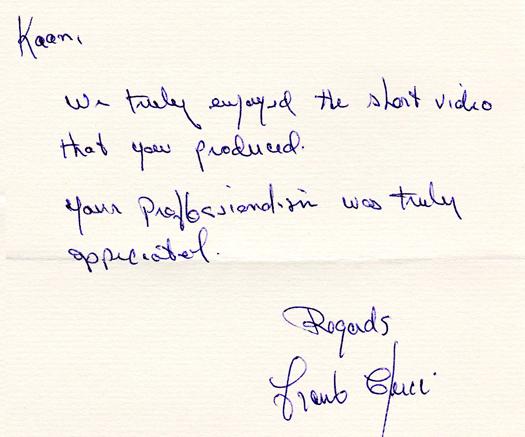 Kaan,
We truly enjoyed the short video
that you produced.
Your Proffessionalism was truly
appreciated.
Regards
Frank